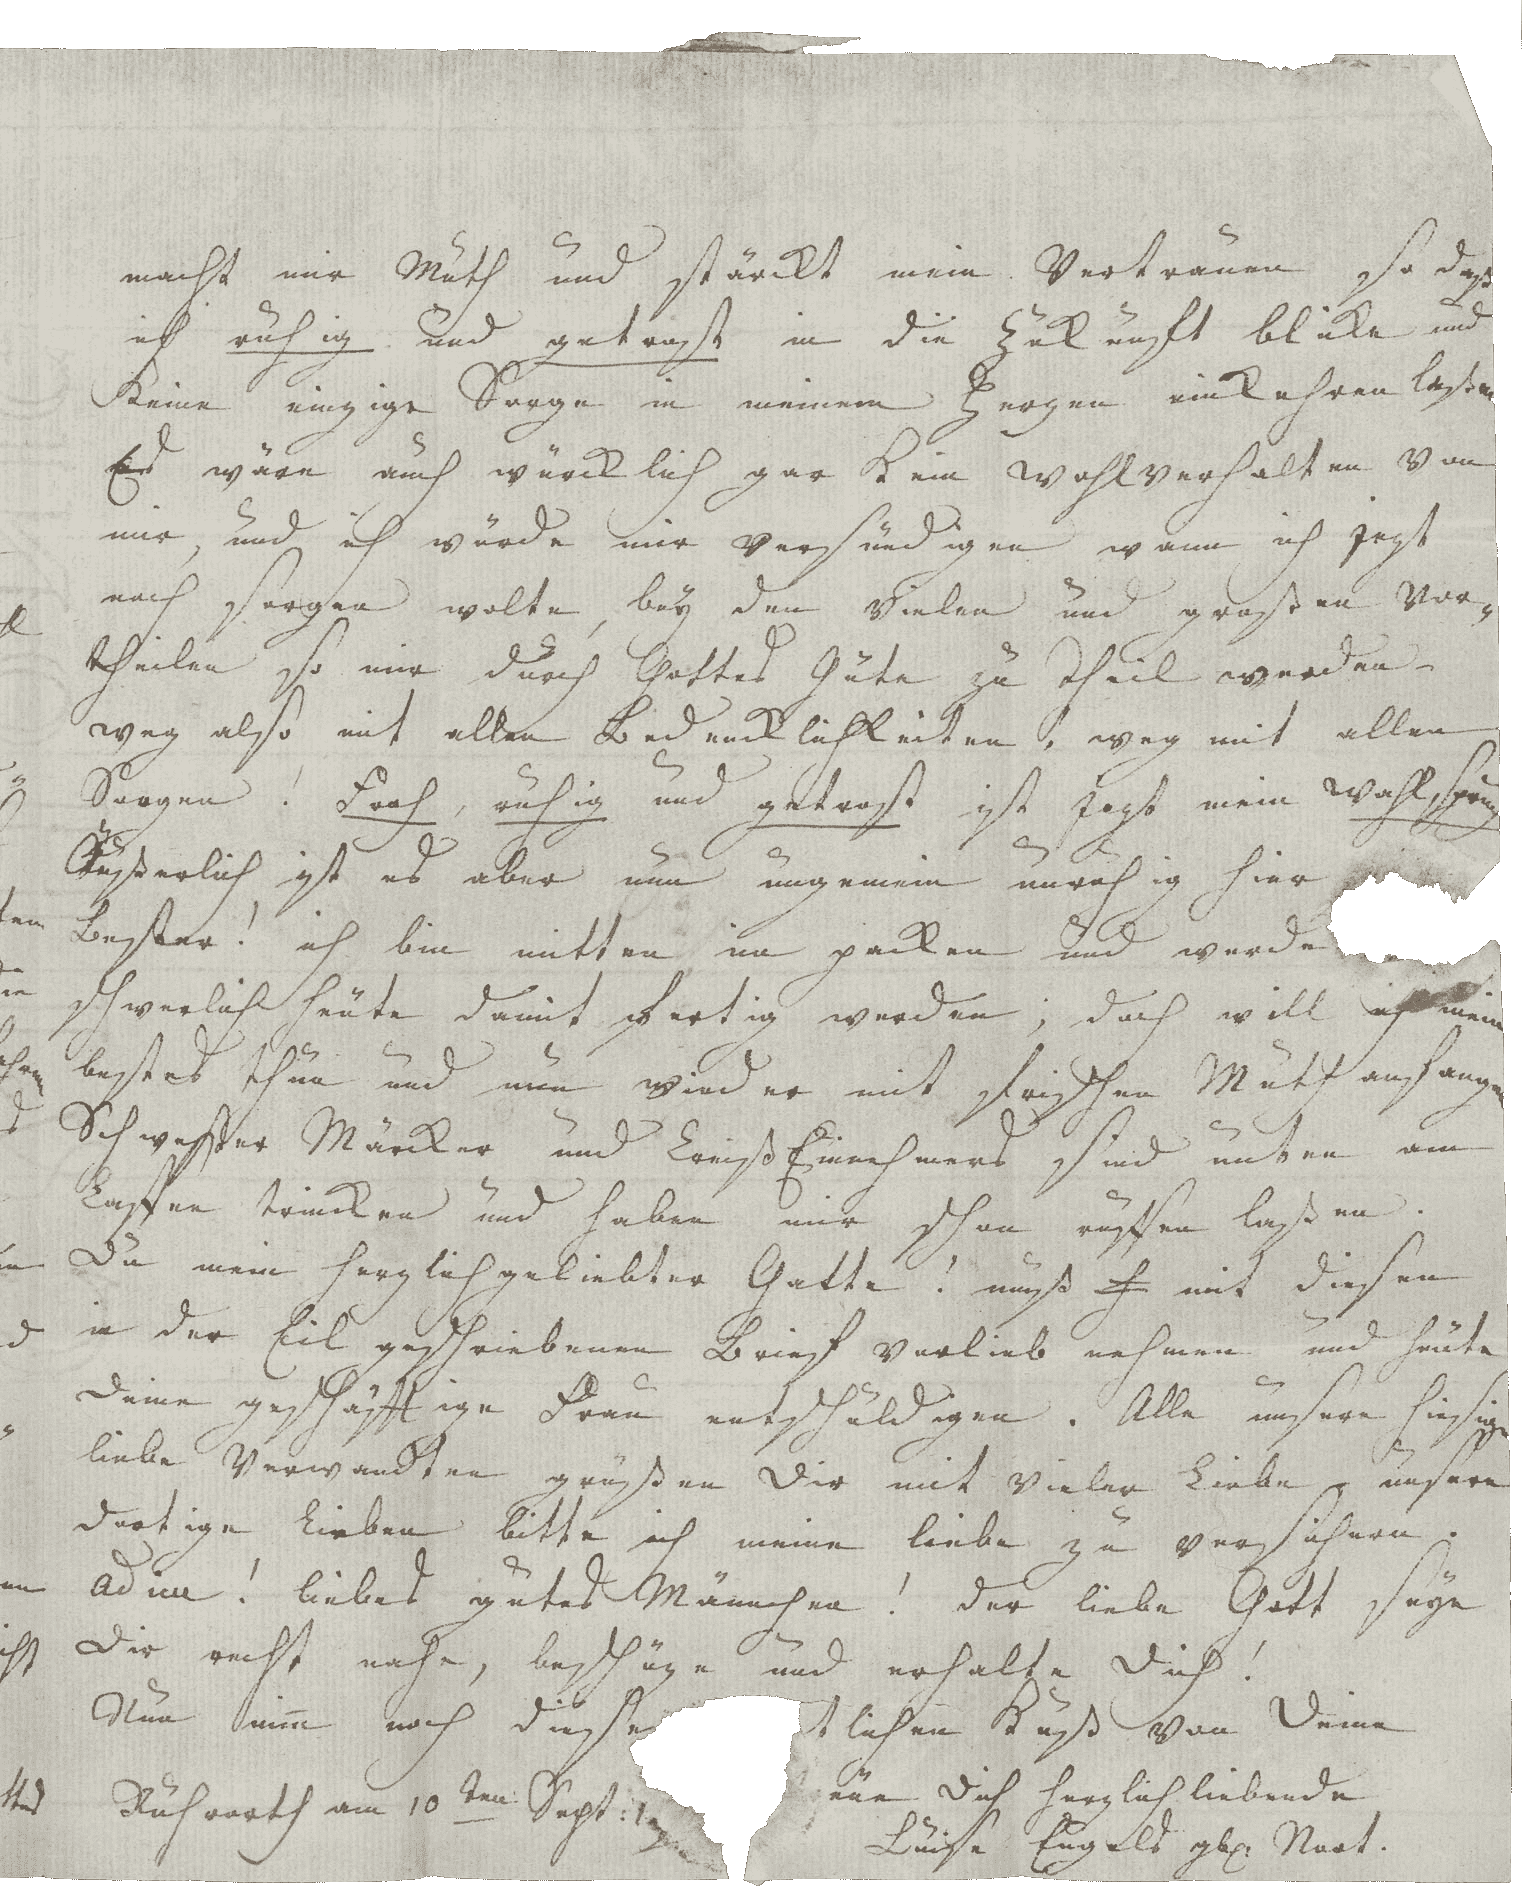 macht mir Muth und stärckt mein Vertrauen so daß
ich ruhig und getrost in die Zukunft blicke und
Keine einzige Sorge in meinem Herzen einkehren laßen
Es wäre auch würcklich gar kein wohlverhalten von
mir, und ich würde mir versündigen wann ich jezt
noch sorgen wolte, bey den vielen und großen Vor-
theilen so mir durch Gottes Güte zu theil werden
weg also mit allen Bedencklichkeiten, weg mit allen
Sorgen! Froh, ruhig und getrost ist jezt mein Wahlspruch
Äußerlich ist es aber nun ungemein unruhig hier
Bester! ich bin mitten im packen und werde
schwerlich heute damit fertig werden; doch will ich mein
bestes thun und nun wieder mit frischen Muth anfangen
Schwester Märcker und Kreiß Einnehmers sind unten am
Caffee trincken und haben mir schon ruffen laßen.
Du mein herzlich geliebter Gatte! must mit diesen
in der Eil geschriebenen Brief verlieb nehmen und heute
Deine geschäfftige Frau entschuldigen. Alle unsere hiesige
liebe Verwandten grüßen Dir mit vieler Liebe, unsere
dortige Lieben bitte ich meine liebe zu versichern.
Adieu! liebes gutes Männchen! der liebe Gott seye
Dir recht nahe, beschüze und erhalte Dich!
Nun nim̅ noch diesse tlichen Kuß von Deine
Ruhrorth am 10ten Sept: 1 eue Dich herzlich liebende
Luise Engels geb. Noot.